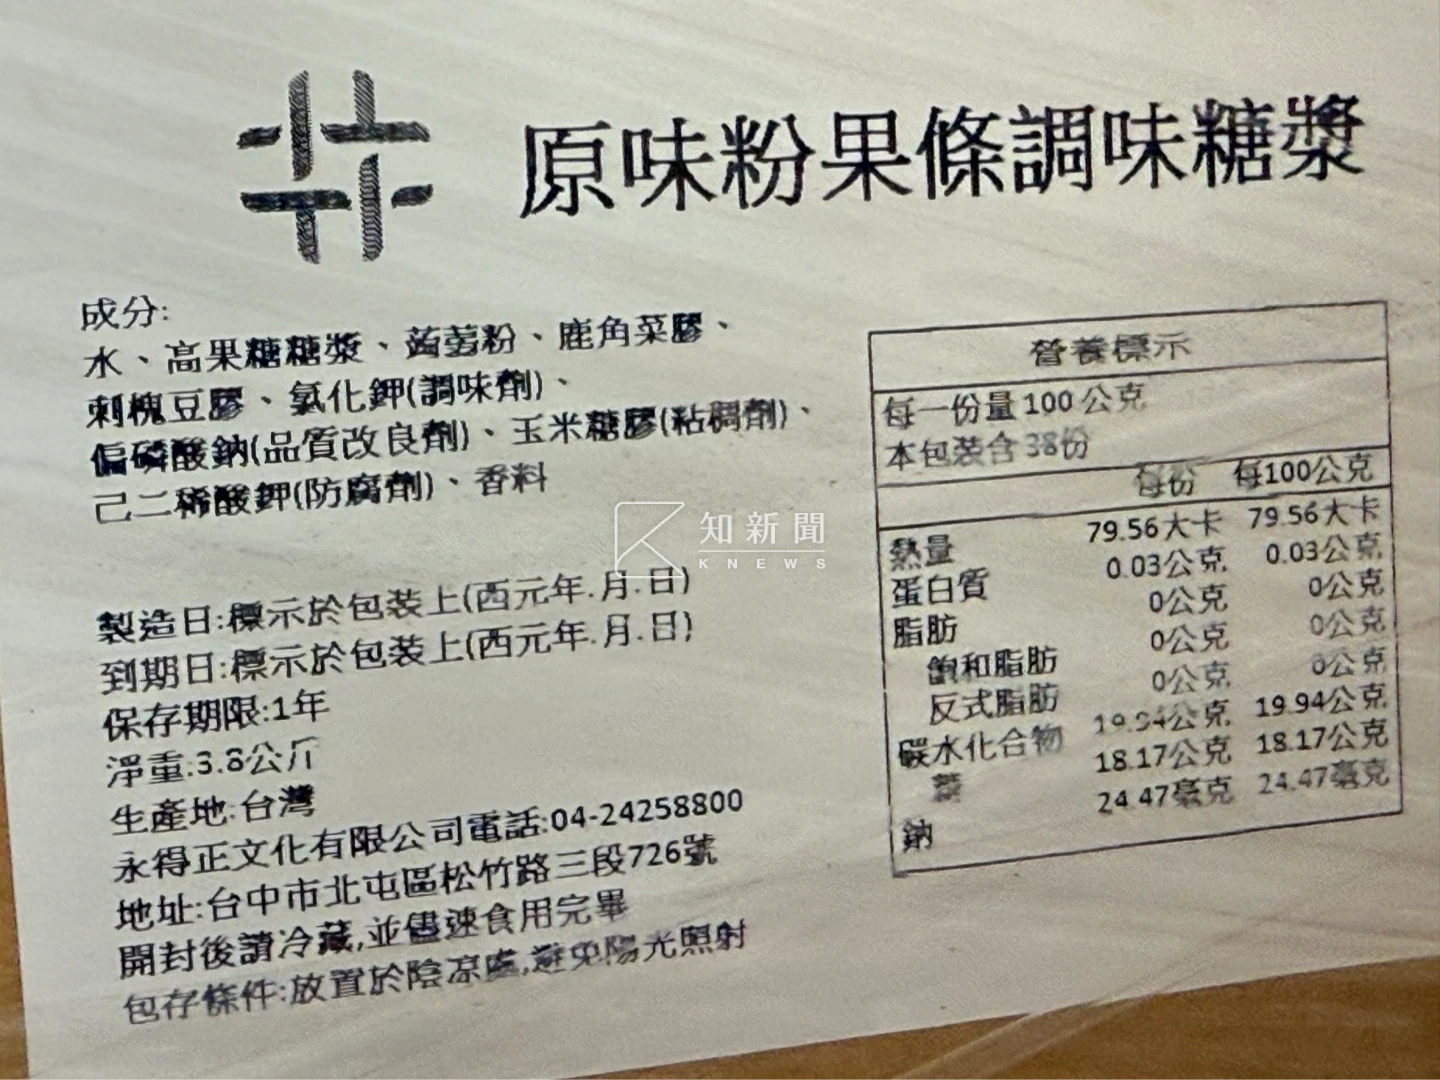 原味粉果條調味糖漿
成分:
水、高果糖糖漿、蒟蒻粉、鹿角菜膠、
刺槐豆膠、氯化鉀(調味劑)、
偏磷酸鈉(品質改良劑)、玉米糖膠(粘稠劑)、
己二稀酸鉀(防腐劑)、香料
製造日:標示於包裝上(西元年.月.日)
到期日:標示於包裝上(西元年.月.日)
保存期限:1年
淨重:3.8公斤
生產地:台灣
永得正文化有限公司電話:04-24258800
地址:台中市北屯區松竹路三段726號
開封後請冷藏,並儘速食用完畢
包存條件:放置於陰涼處,避免陽光照射
營養標示
每一份量100公克
本包裝含38份
每份 每100公克
熱量 79.56大卡 79.56大卡
蛋白質 0.03公克 0.03公克
脂肪 0公克 0公克
飽和脂肪 0公克 0公克
反式脂肪 0公克 0公克
碳水化合物 19.94公克 19.94公克
18.17公克 18.17公克
鈉 24.47毫克 24.47毫克
知新聞
KNEWS